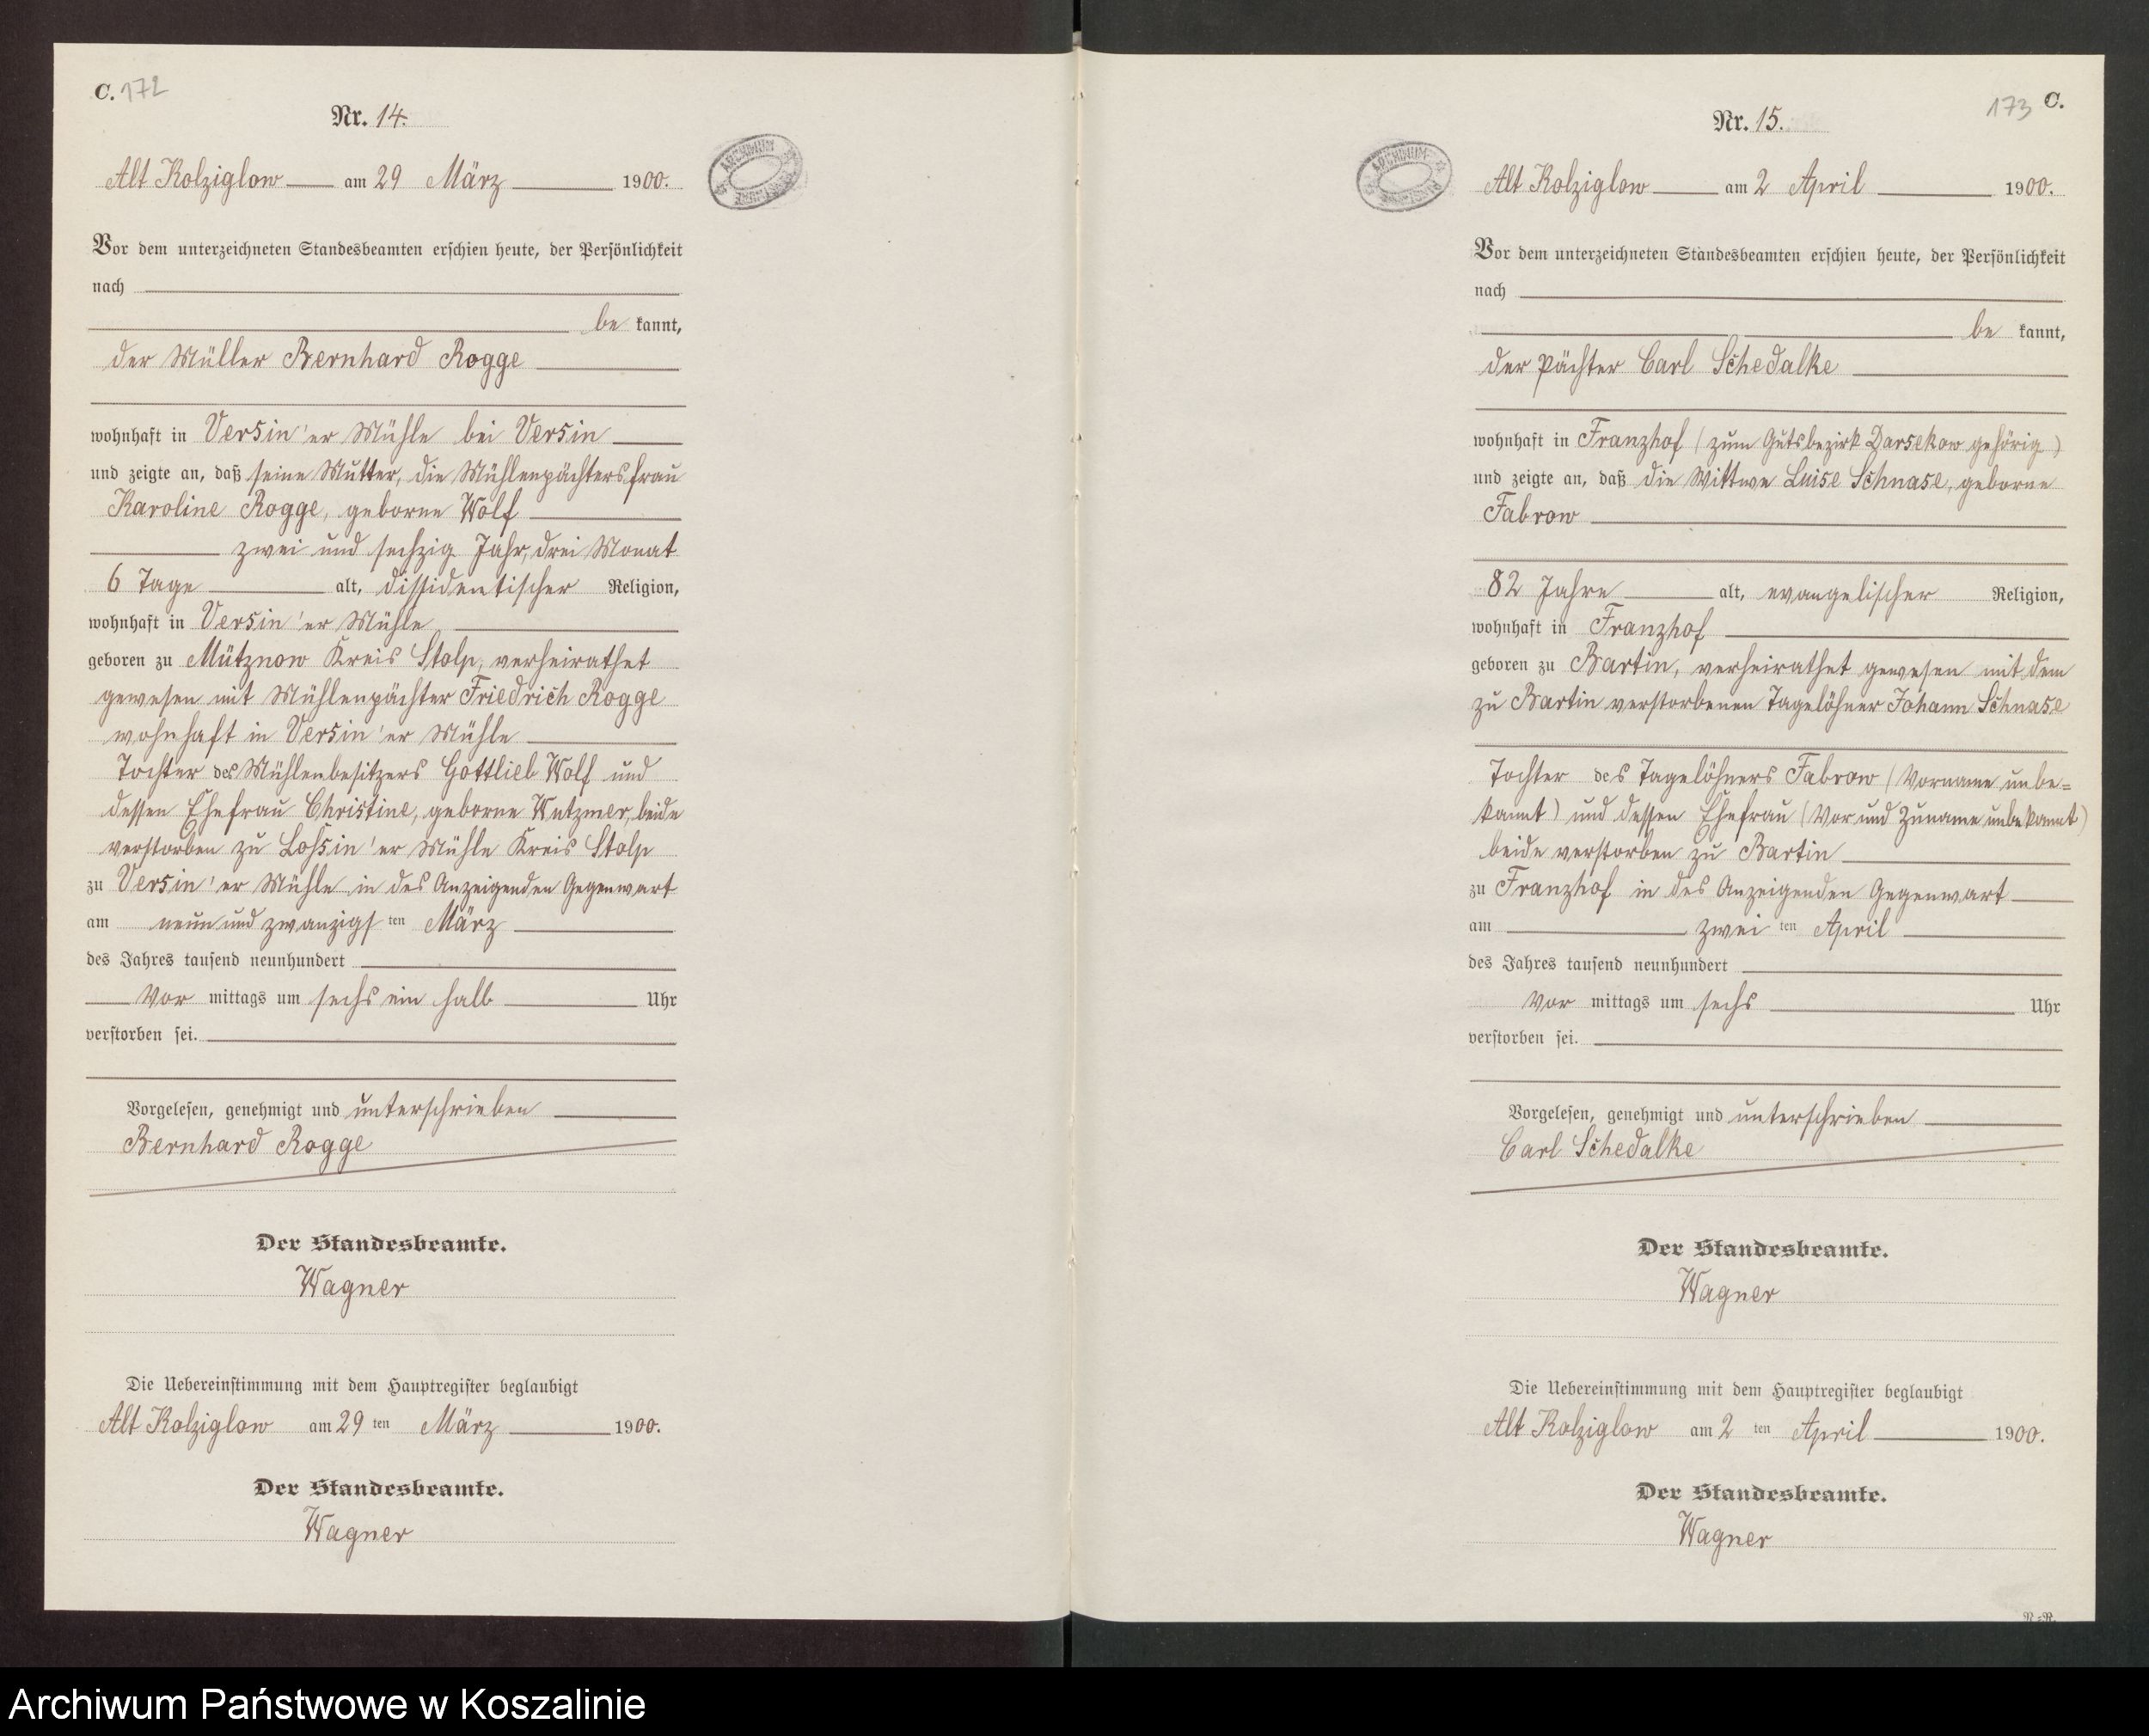 C. 172
Nr. 14.
Alt Kolziglow am 29 März 1900.
Vor dem unterzeichneten Standesbeamten erschien heute, der Persönlichkeit
nach
be kannt,
der Müller Bernhard Rogge
wohnhaft in Versin'er Mühle bei Versin
und zeigte an, daß seine Mutter, die Mühlenpächtersfrau
Karoline Rogge, geborne Wolf
zwei und sechzig Jahr, drei Monat
6 Tage alt, dissidentischer Religion,
wohnhaft in Versin'er Mühle
geboren zu Mütznow Kreis Stolp, verheirathet
gewesen mit Mühlenpächter Friedrich Rogge
wohnhaft in Versin'er Mühle
Tochter des Mühlenbesitzers Gottlieb Wolf und
dessen Ehefrau Christine, geborne Wutzmer, beide
verstorben zu Lossin'er Mühle Kreis Stolp
zu Versin'er Mühle in des Anzeigenden Gegenwart
am neun und zwanzigs ten März
des Jahres tausend neunhundert
Vor mittags um sechs ein halb Uhr
verstorben sei.
Vorgelesen, genehmigt und unterschrieben
Bernhard Rogge
Der Standesbeamte.
Wagner
Die Uebereinstimmung mit dem Hauptregister beglaubigt
Alt Kolziglow am 29 ten März 1900.
Der Standesbeamte.
Wagner
173 C.
Nr. 15.
Alt Kolziglow am 2 April 1900.
Vor dem unterzeichneten Standesbeamten erschien heute, der Persönlichkeit
nach
be kannt,
der Pächter Carl Schedalke
wohnhaft in Franzhof (zum Gutsbezirk Darsekow gehörig)
und zeigte an, daß die Wittwe Luise Schnase, geborne
Fabrow
82 Jahre alt, evangelischer Religion,
wohnhaft in Franzhof
geboren zu Bartin, verheirathet gewesen mit dem
zu Bartin verstorbenen Tagelöhner Johann Schnase
Tochter des Tagelöhners Fabrow (Vorname unbe=
kannt) und dessen Ehefrau (Vor und Zuname unbekannt)
beide verstorben zu Bartin
zu Franzhof in des Anzeigenden Gegenwart
am zwei ten April
des Jahres tausend neunhundert
Vor mittags um sechs Uhr
verstorben sei.
Vorgelesen, genehmigt und unterschrieben
Carl Schedalke
Der Standesbeamte.
Wagner
Die Uebereinstimmung mit dem Hauptregister beglaubigt
Alt Kolziglow am 2 ten April 1900.
Der Standesbeamte.
Wagner
Archiwum Państwowe w Koszalinie